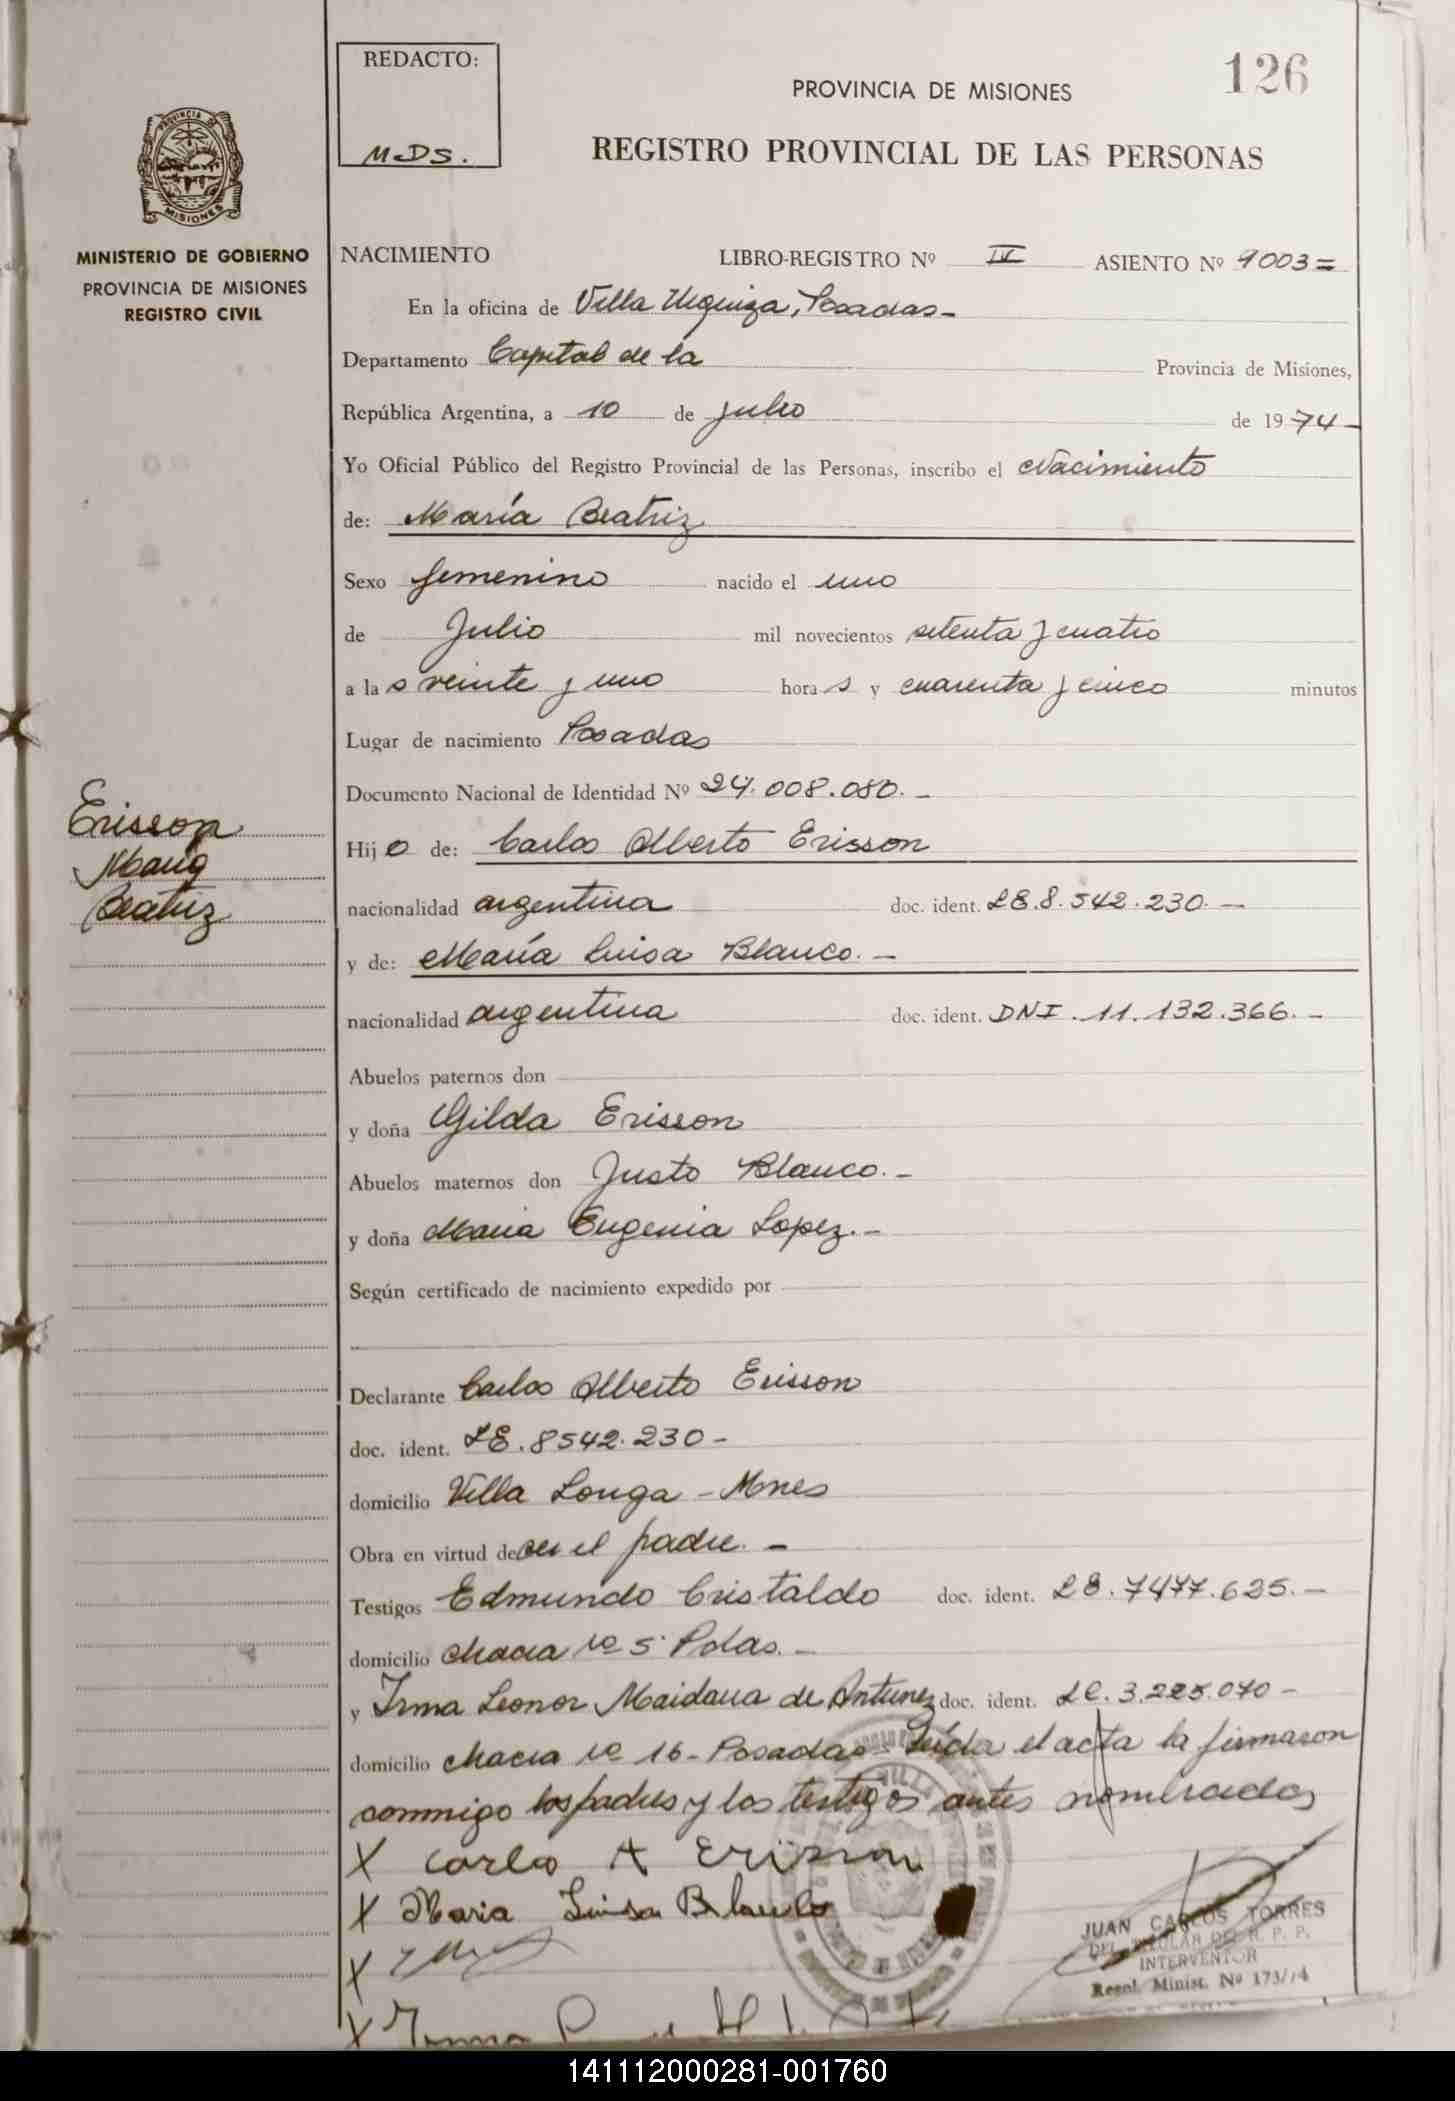 REDACTO:
MDS.
126
PROVINCIA DE MISIONES
REGISTRO PROVINCIAL DE LAS PERSONAS
PROVINCIA DE
MISIONES
MINISTERIO DE GOBIERNO
PROVINCIA DE MISIONES
REGISTRO CIVIL
NACIMIENTO LIBRO-REGISTRO Nº IV ASIENTO Nº 9003=
En la oficina de Villa Urquiza, Posadas-
Departamento Capital de la Provincia de Misiones,
República Argentina, a 10 de julio de 1974-
Yo Oficial Público del Registro Provincial de las Personas, inscribo el Nacimiento
de: María Beatriz
Sexo femenino nacido el uno
de Julio mil novecientos setenta y cuatro
a la s veinte y uno hora s y cuarenta y cinco minutos
Lugar de nacimiento Posadas
Documento Nacional de Identidad Nº 24.008.080.-
Erisson
María
Beatriz
Hij o de: Carlos Alberto Erisson
nacionalidad argentina doc. ident. LE.8.542.230.-
y de: María Luisa Blanco.-
nacionalidad argentina doc. ident. DNI.11.132.366.-
Abuelos paternos don
y doña Gilda Erisson
Abuelos maternos don Justo Blanco.-
y doña Maria Eugenia Lopez.-
Según certificado de nacimiento expedido por
Declarante Carlos Alberto Erisson
doc. ident. LE.8542.230-
domicilio Villa Longa-Mnes
Obra en virtud de ser el padre.-
Testigos Edmundo Cristaldo doc. ident. LE.7477.625.-
domicilio chacra nº 5 Pdas.-
y Irma Leonor Maidana de Antunez doc. ident. LC.3.225.070-
domicilio chacra nº 16-Posadas- Leída el acta la firmaron
conmigo los padres y los testigos antes nombrados
X Carlo A Erisson
X Maria Luisa Blanco
X
X Irma
JUAN CARLOS TORRES
DEL. TITULAR DEL R. P. P.
INTERVENTOR
Resol. Minist. Nº 173/74
141112000281-001760